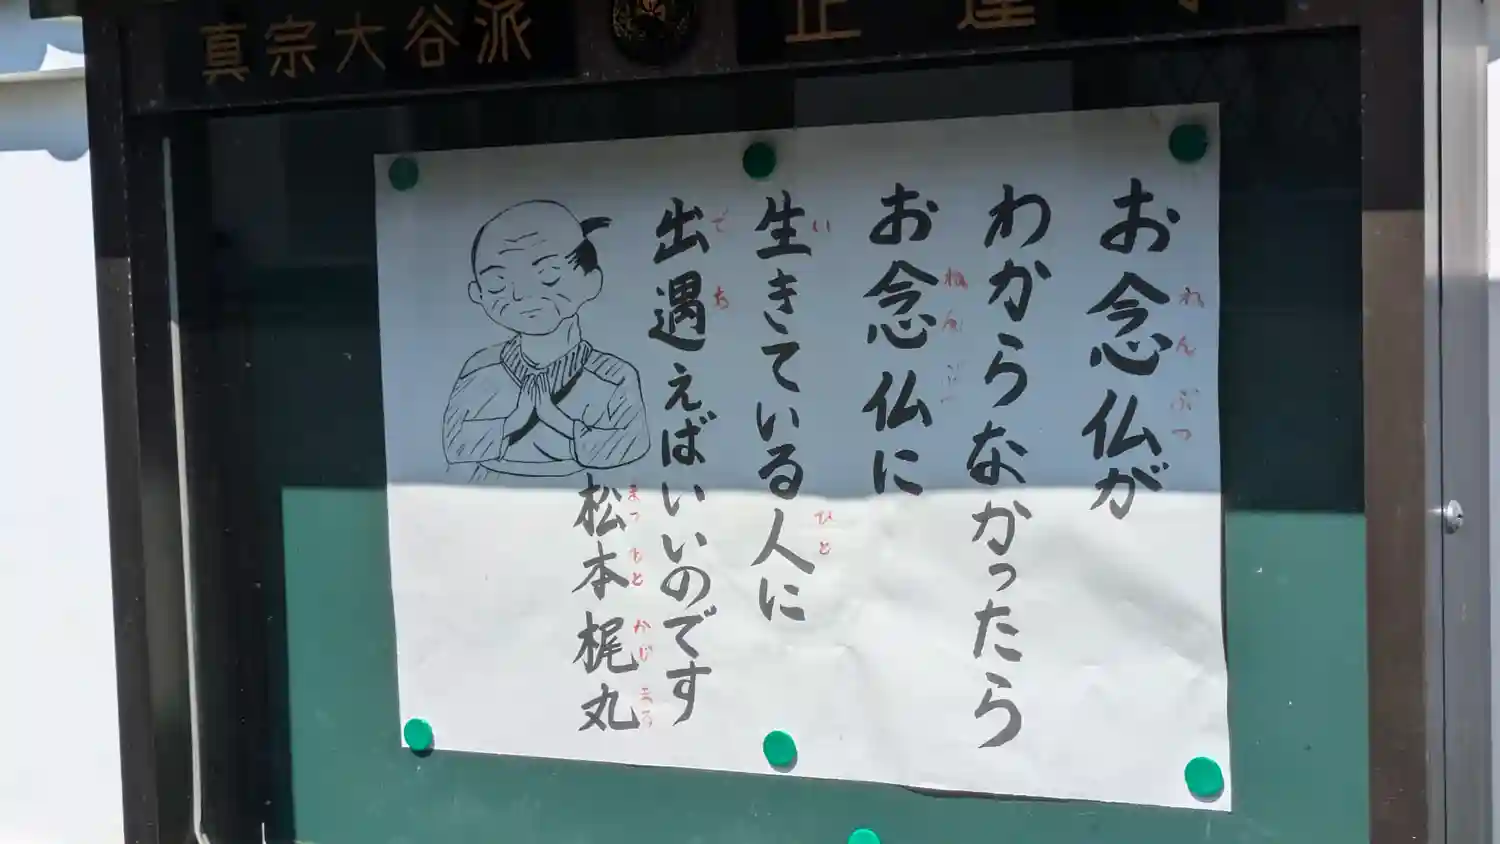 真宗大谷派
お念仏が
わからなかったら
お念仏に
生きている人に
出遇えばいいのです
松本梶丸